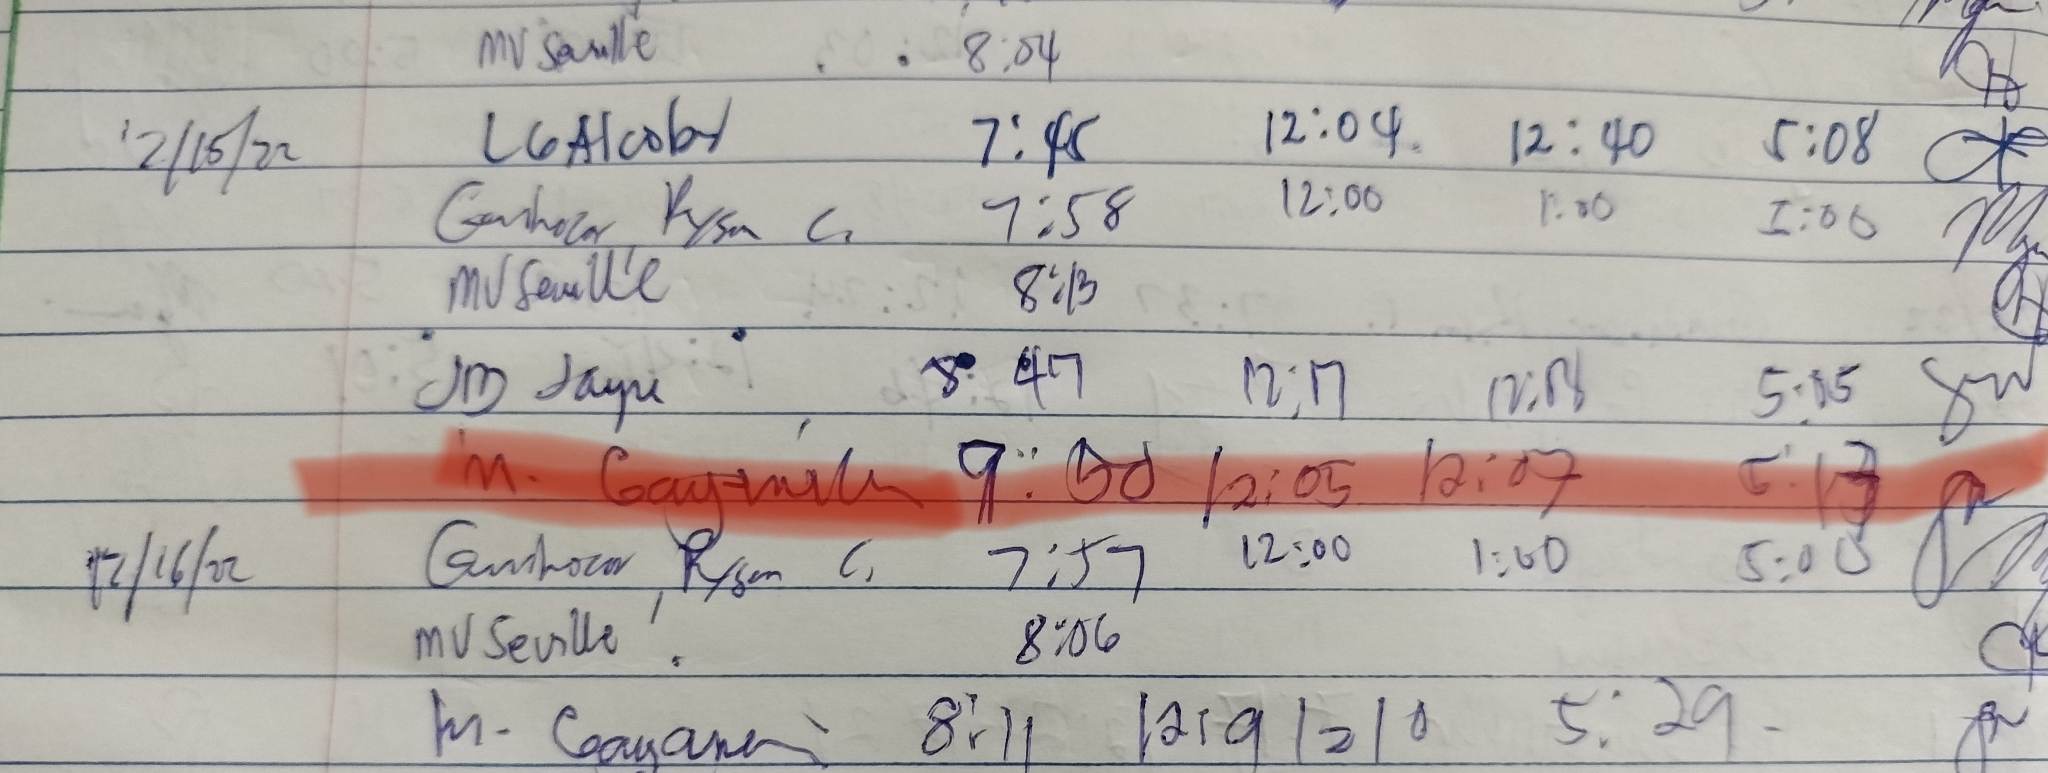 MV Seville 8:04
12/15/22 LG Alcober 7:45 12:04 12:40 5:08
Ryan C. 7:58 12:00 1:00 5:00
MV Seville 8:13
JM 8:47 12:17 12:18 5:05
M. 9:00 12:05 12:07 5:13
12/16/22 Ryan C. 7:57 12:00 1:00 5:00
MV Seville 8:06
M. 8:11 12:9 1210 5:29